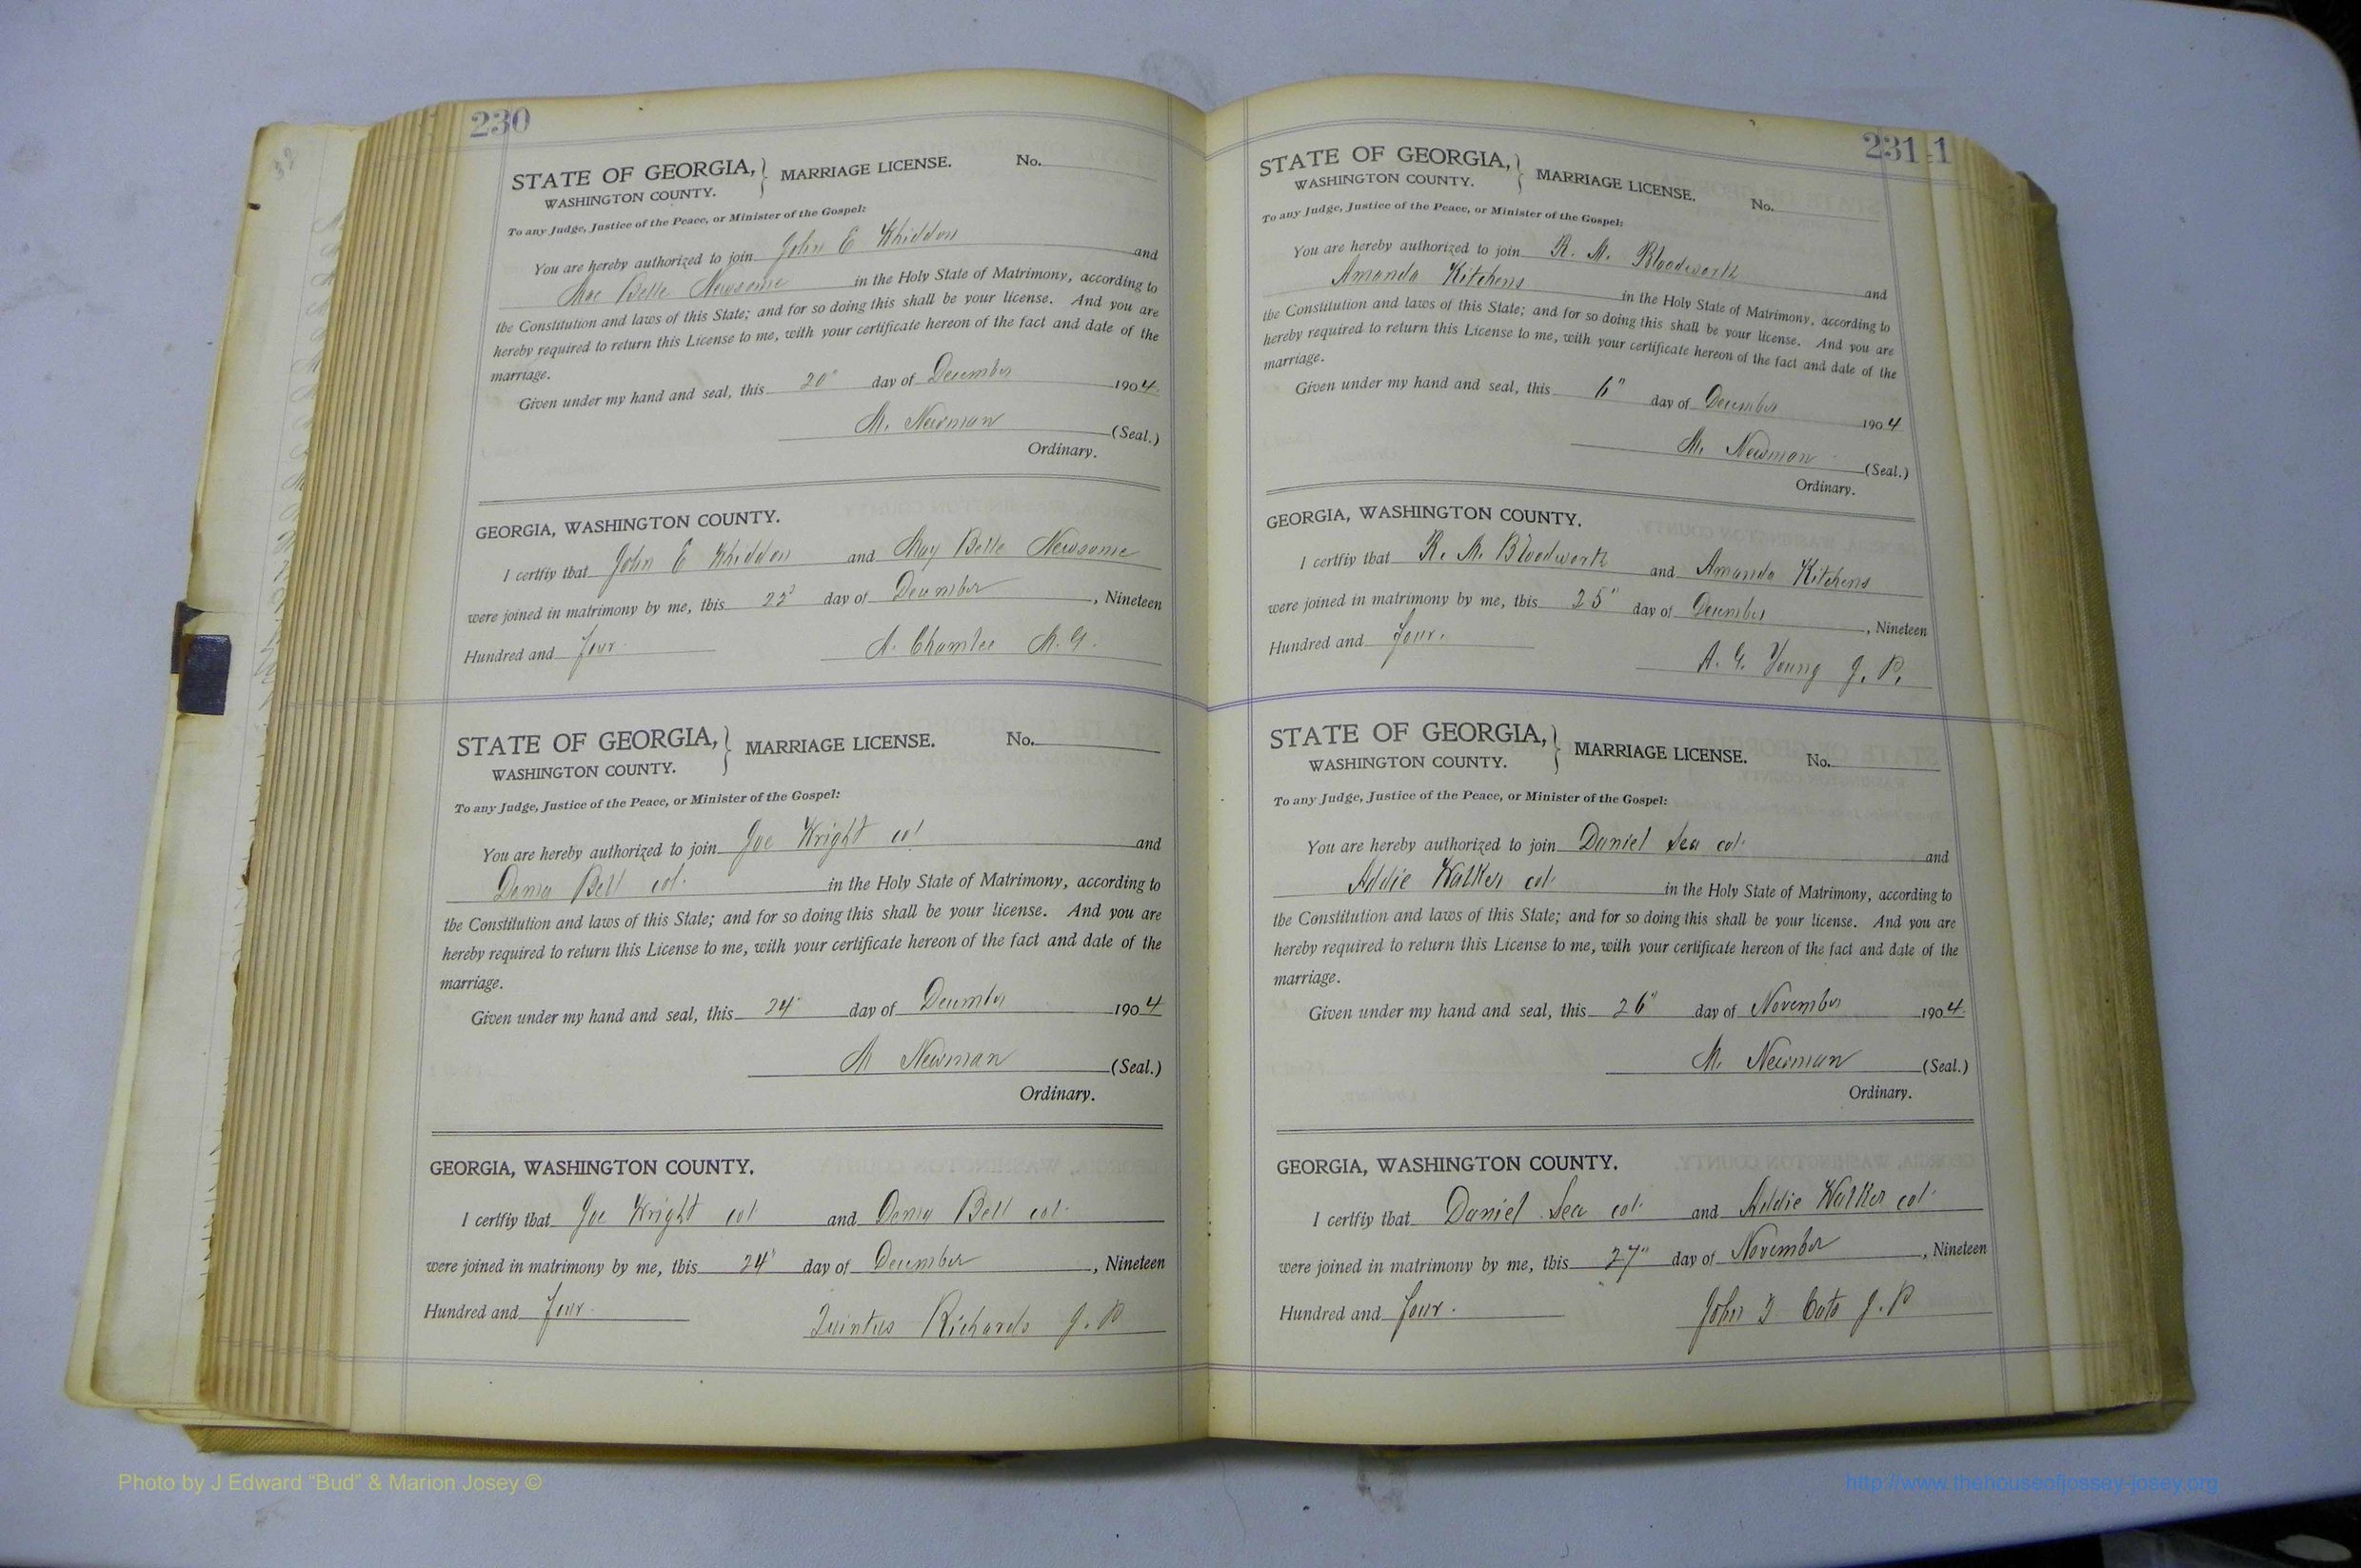 230
STATE OF GEORGIA, } MARRIAGE LICENSE. No.
WASHINGTON COUNTY.
To any Judge, Justice of the Peace, or Minister of the Gospel:
You are hereby authorized to join John E Whiddon and
Mae Belle Newsome in the Holy State of Matrimony, according to
the Constitution and laws of this State; and for so doing this shall be your license. And you are
hereby required to return this License to me, with your certificate hereon of the fact and date of the
marriage.
Given under my hand and seal, this 20" day of December 1904.
M. Newman (Seal.)
Ordinary.
GEORGIA, WASHINGTON COUNTY.
I certfiy that John E Whiddon and May Belle Newsome
were joined in matrimony by me, this day of December, Nineteen
Hundred and four.
A. Chamlee M. G.
STATE OF GEORGIA, } MARRIAGE LICENSE. No.
WASHINGTON COUNTY.
To any Judge, Justice of the Peace, or Minister of the Gospel:
You are hereby authorized to join Joe Wright col and
Bell col. in the Holy State of Matrimony, according to
the Constitution and laws of this State; and for so doing this shall be your license. And you are
hereby required to return this License to me, with your certificate hereon of the fact and date of the
marriage.
Given under my hand and seal, this 24" day of December 1904
M Newman (Seal.)
Ordinary.
GEORGIA, WASHINGTON COUNTY.
I certfiy that Joe Wright col and Bell col.
were joined in matrimony by me, this 24" day of December, Nineteen
Hundred and four.
Quintus Richards J. P
231
1
STATE OF GEORGIA, } MARRIAGE LICENSE. No.
WASHINGTON COUNTY.
To any Judge, Justice of the Peace, or Minister of the Gospel:
You are hereby authorized to join R. M. Bloodworth and
Amanda Kitchens in the Holy State of Matrimony, according to
the Constitution and laws of this State; and for so doing this shall be your license. And you are
hereby required to return this License to me, with your certificate hereon of the fact and date of the
marriage.
Given under my hand and seal, this 6" day of December 1904
M. Newman (Seal.)
Ordinary.
GEORGIA, WASHINGTON COUNTY.
I certfiy that R. M. Bloodworth and Amanda Kitchens
were joined in matrimony by me, this 25" day of December, Nineteen
Hundred and four.
A. G. Young J. P.
STATE OF GEORGIA, } MARRIAGE LICENSE. No.
WASHINGTON COUNTY.
To any Judge, Justice of the Peace, or Minister of the Gospel:
You are hereby authorized to join Daniel Sea col. and
Addie Walker col. in the Holy State of Matrimony, according to
the Constitution and laws of this State; and for so doing this shall be your license. And you are
hereby required to return this License to me, with your certificate hereon of the fact and date of the
marriage.
Given under my hand and seal, this 26" day of November 1904.
M. Newman (Seal.)
Ordinary.
GEORGIA, WASHINGTON COUNTY.
I certfiy that Daniel Sea col. and Addie Walker col.
were joined in matrimony by me, this 27" day of November, Nineteen
Hundred and four.
John Cato J. P
Photo by J Edward “Bud” & Marion Josey ©
http://www.thehouseofjossey-josey.org